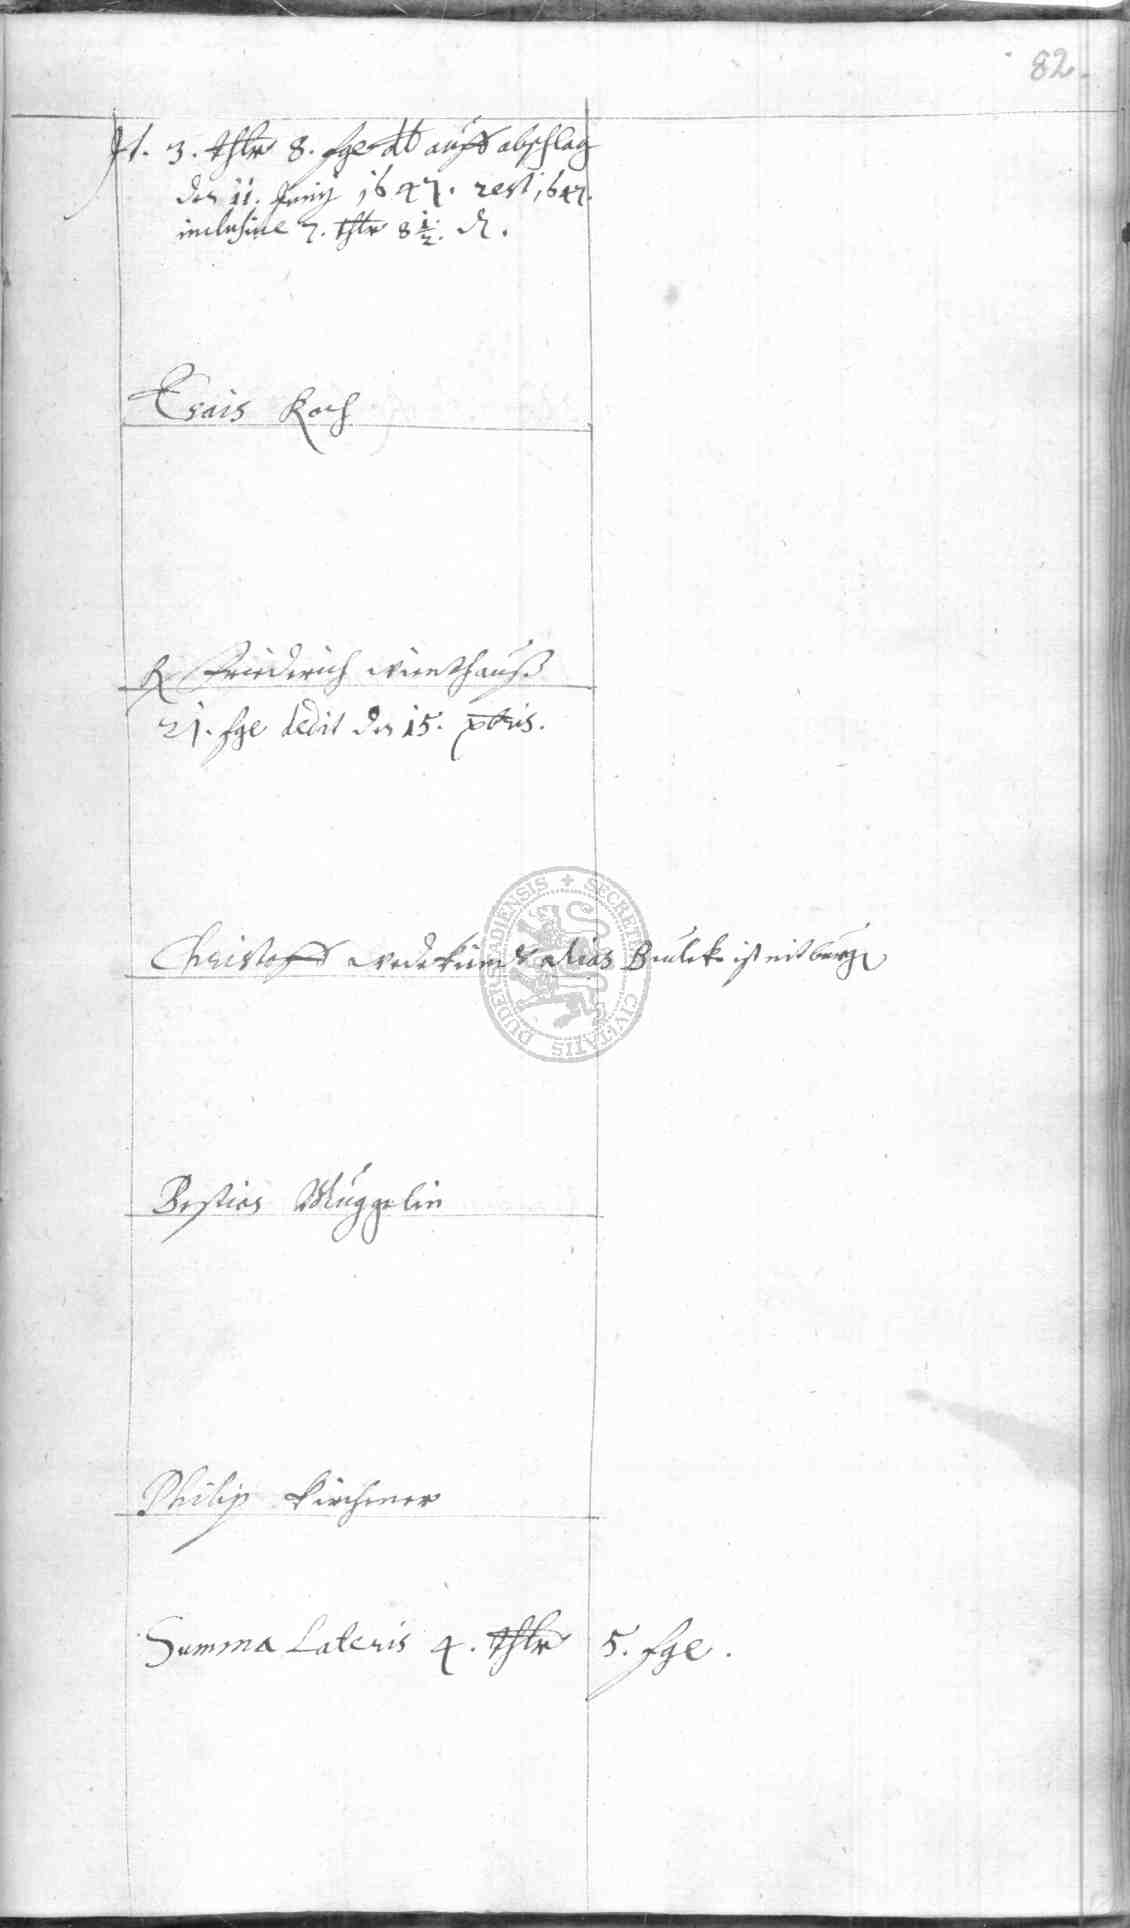 82.
It. 3. thlr 8. fge dt auff abschlag
den 11. Junij 1647. rest 1647.
inclusive 7. thlr 8 1/2. d.
Esais Koch
H Friederich Wienthauß
21. fge dedit den 15. xbris.
Christoff Wedekindt alias Beuleke ist nit burger
Bestian Müggelin
Philip Kirchener
Summa Lateris 4. thlr 5. fge.
SECRET CIVITATIS DUDERSTADIENSIS